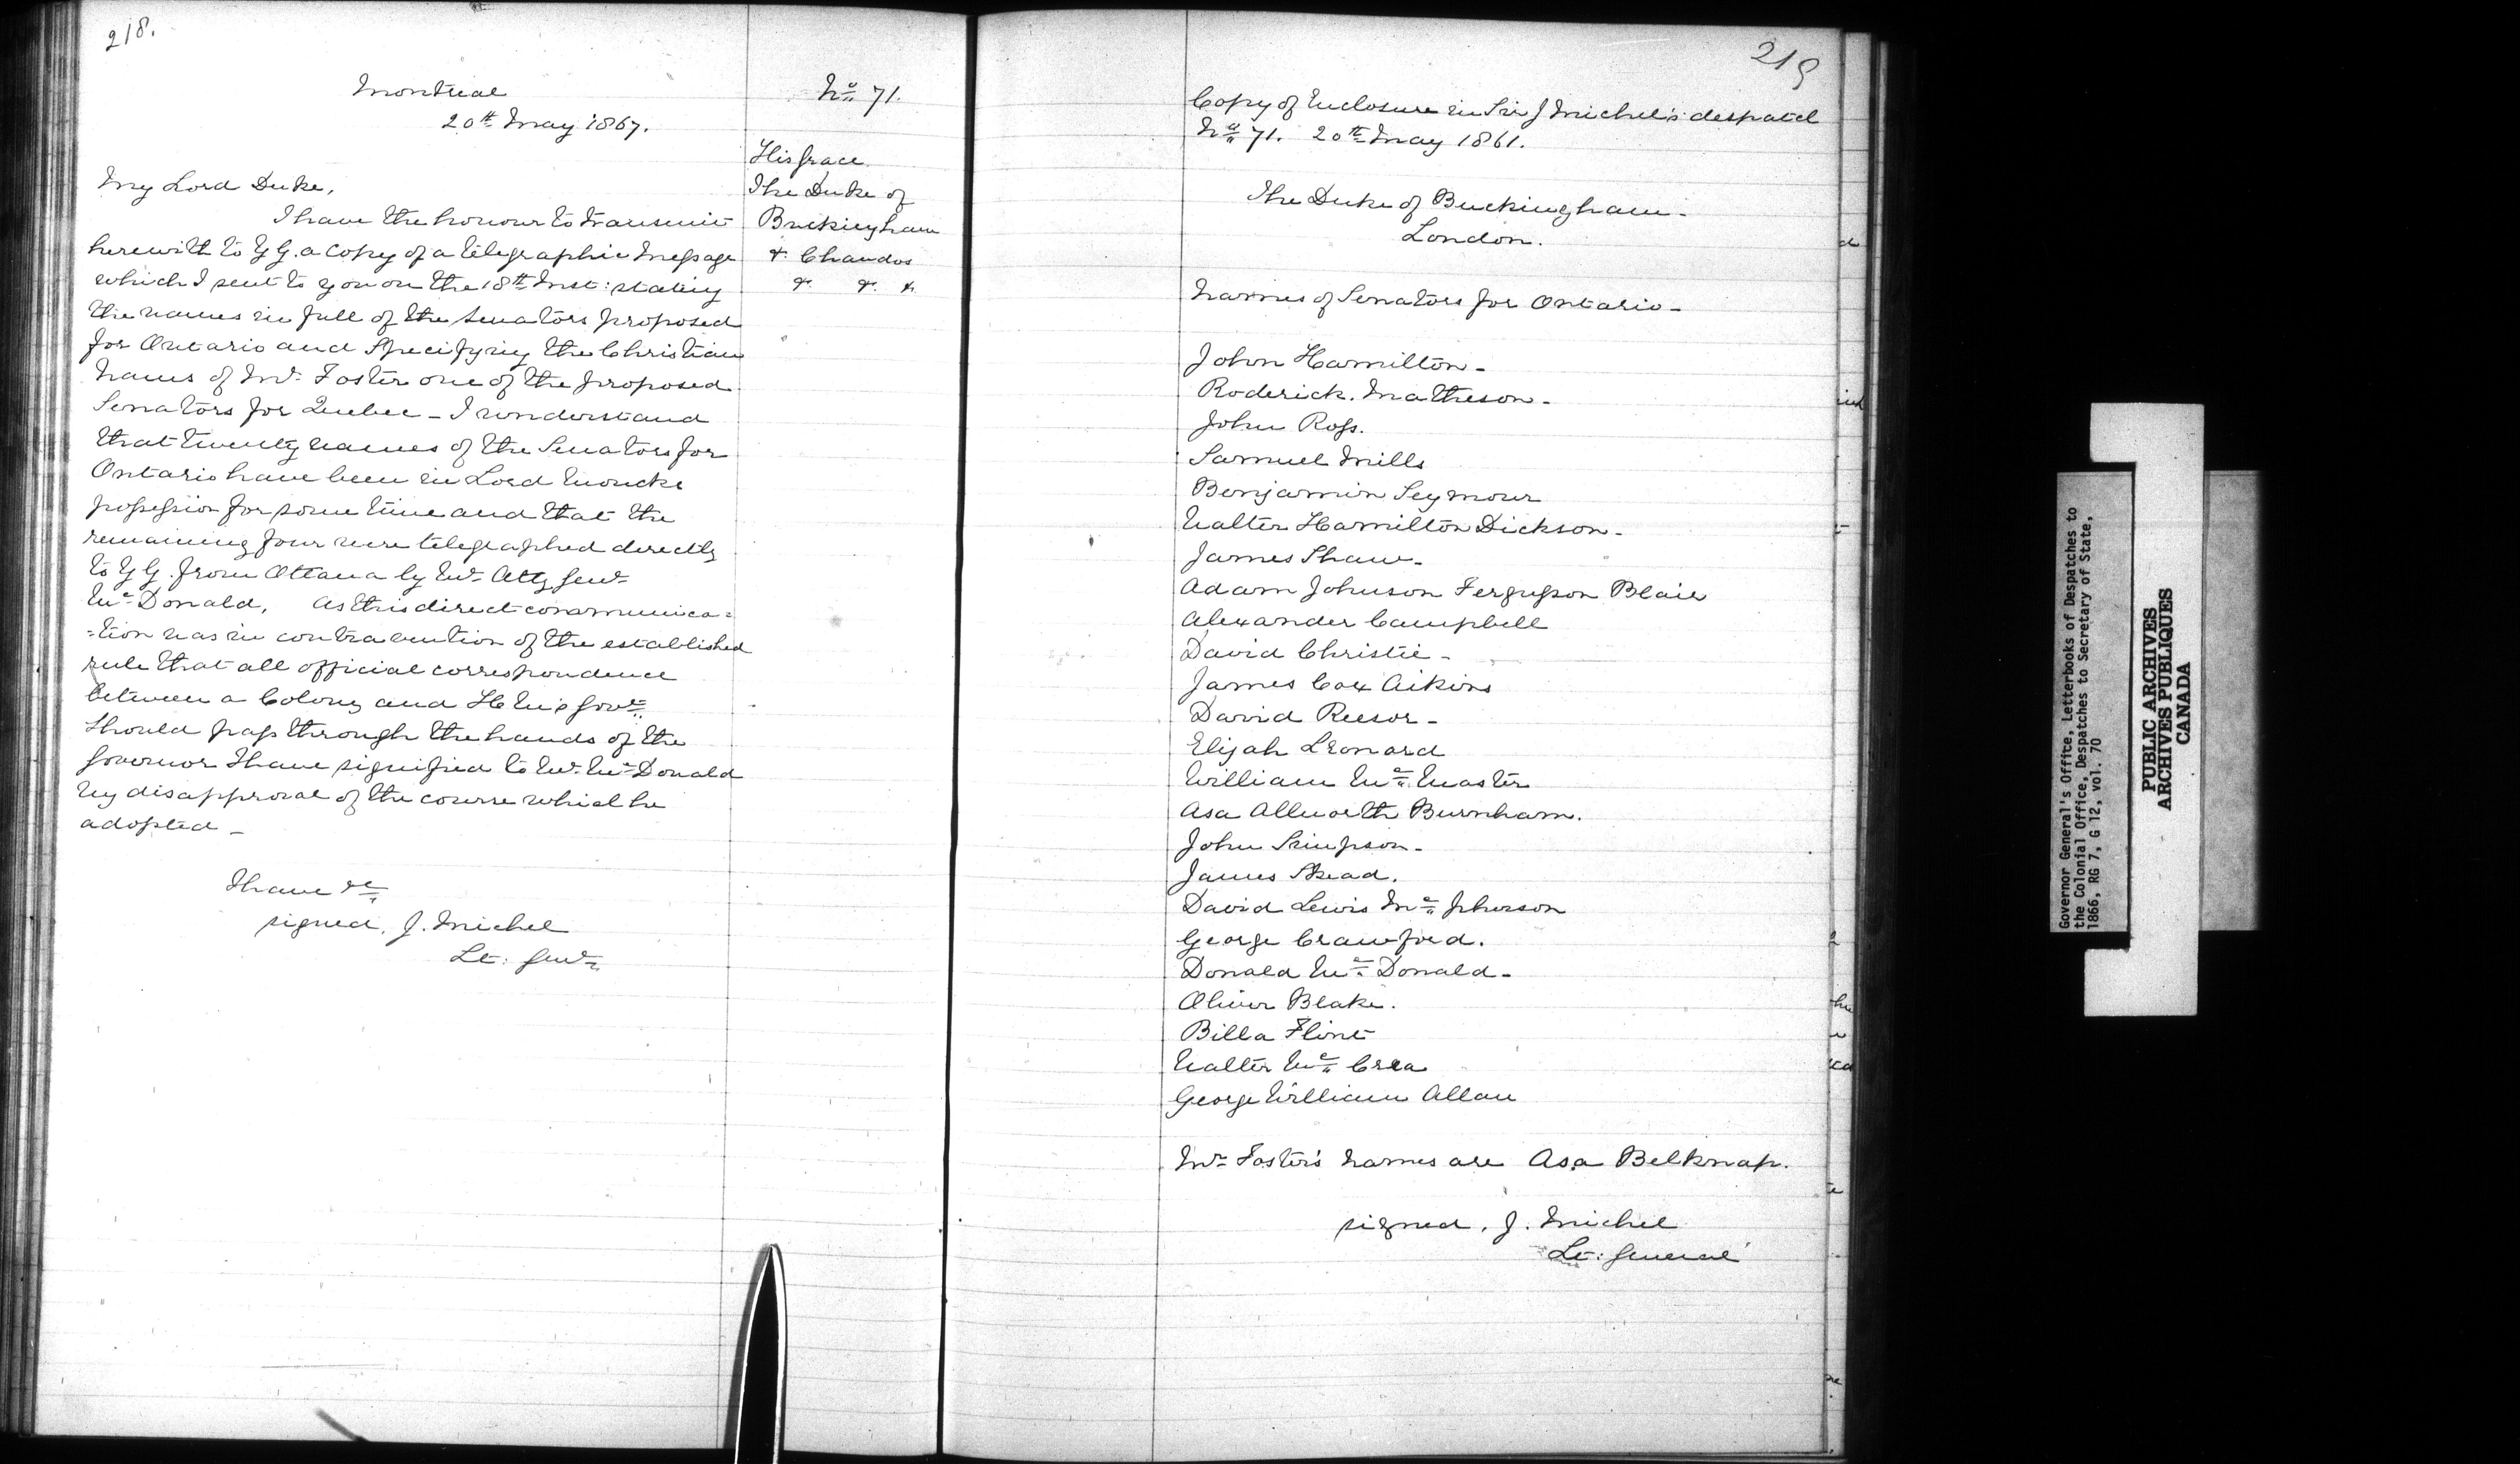 218.
Montreal
20th May 1867.
No 71.
His Grace
The Duke of
Buckingham
& Chandos
&. &. &.
My Lord Duke,
I have the honour to transmit
herewith to Y G. a copy of a telegraphic Message
which I sent to you on the 18th Inst: stating
the names in full of the Senators proposed
for Ontario and Specifying the Christian
Names of Mr. Foster one of the proposed
Senators for Quebec - I understand
that twenty names of the Senators for
Ontario have been in Lord Moncks
possession for some time and that the
remaining four were telegraphed directly
to Y G. from Ottawa by Mr. Atty Genl
McDonald, As this direct communica=
=tion was in contravention of the established
rule that all official correspondence
between a Colony and H M's Govt
Should pass through the hands of the
Governor I have signified to Mr. McDonald
My disapproval of the course which he
adopted -
I have &c
signed, J. Michel
Lt: Genl
219
Copy of Enclosure in Sir J Michel's despatch
No 71. 20th May 1861.
The Duke of Buckingham -
London.
Names of Senators for Ontario -
John Hamilton -
Roderick. Matheson -
John Ross.
Samuel Mills
Benjamin Seymour
Walter Hamilton Dickson -
James Shaw -
Adam Johnson Fergusson Blair
Alexander Campbell
David Christie -
James Cox Aikins
David Reesor -
Elijah Leonard
William Mc Master
Asa Allworth Burnham.
John Simpson -
James Skead.
David Lewis Mc Pherson
George Crawford.
Donald Mc Donald -
Oliver Blake.
Billa Flint
Walter Mc Crea
George William Allan
Mr Foster's names are Asa Belknap.
signed, J. Michel
Lt: General
Governor General's Office, Letterbooks of Despatches to
the Colonial Office, Despatches to Secretary of State,
1866, RG 7, G 12, vol. 70
PUBLIC ARCHIVES
ARCHIVES PUBLIQUES
CANADA